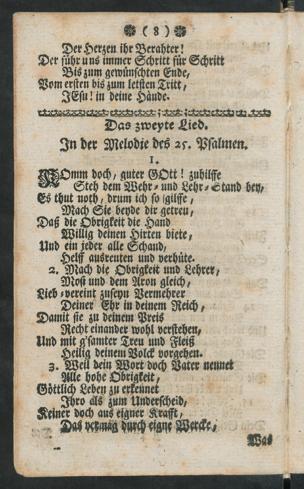 ( 8 )
Der Herzen ihr Berahter!
Der führ uns immer Schritt für Schritt
Bis zum gewünschten Ende,
Vom ersten bis zum letsten Tritt,
JEsu! in deine Hände.
Das zweyte Lied.
In der Melodie des 25. Psalmen.
1.
KOmm doch, guter GOtt! zuhilffe
Steh dem Wehr- und Lehr-Stand bey,
Es thut noth, drum ich so gilffe,
Mach Sie beyde dir getreu,
Daß die Obrigkeit die Hand
Willig deinen Hirten biete,
Und ein jeder alle Schand,
Helff ausreuten und verhüte.
2. Mach die Obrigkeit und Lehrer,
Mose und dem Aron gleich,
Lieb-vereint zuseyn Vermehrer
Deiner Ehr in deinem Reich,
Damit sie zu deinem Preis
Recht einander wohl verstehen,
Und mit g'samter Treu und Fleiß
Heilig deinem Volck vorgehen.
3. Weil dein Wort doch Vater nennet
Alle hohe Obrigkeit,
Göttlich Leben zu erkennet
Ihro als zum Underscheid,
Keiner doch aus eigner Krafft,
Das vermag durch eigne Wercke,
Was